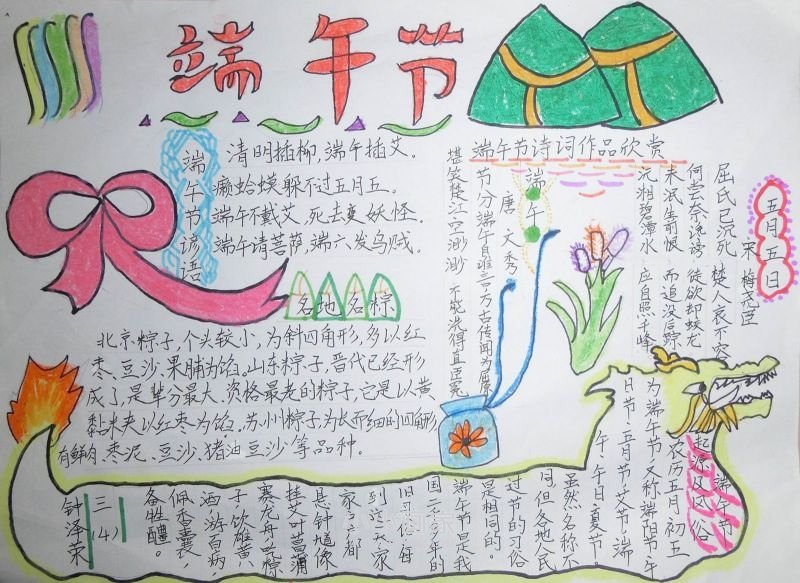 端午节
端午节谚语
清明插柳，端午插艾。
癞蛤蟆躲不过五月五。
端午不戴艾，死去变妖怪。
端午请菩萨，端六发乌贼。
端午节诗词作品欣赏
端午
唐 文秀
节分端午自谁言，万古传闻为屈原。
堪笑楚江空渺渺，不能洗得直臣冤。
五月五日
宋 梅尧臣
屈氏已沉死，楚人哀不容。
何尝奈谗谤，徒欲却蛟龙。
未泯生前恨，而追没后踪。
沅湘碧潭水，应自照千峰。
各地名粽
北京粽子，个头较小，为斜四角形，多以红
枣、豆沙、果脯为馅。山东粽子，晋代已经形
成了，是辈分最大、资格最老的粽子，它是以黄
黏米夹以红枣为馅。苏州粽子为长而细的四角形，
有鲜肉、枣泥、豆沙、猪油豆沙等品种。
端午节
起源及风俗
农历五月初五
为端午节，又称端阳节、午
日节、五月节、艾节、端
午、午日、夏节。
虽然名称不
同，但各地人民
过节的习俗
是相同的。
端午节是我
国二千多年的
旧习俗，每
到这天，家
家户户都
悬钟馗像，
挂艾叶菖蒲，
赛龙舟，吃粽
子，饮雄黄
酒，游百病，
佩香囊，
备牲醴。
三（4）
钟泽荣